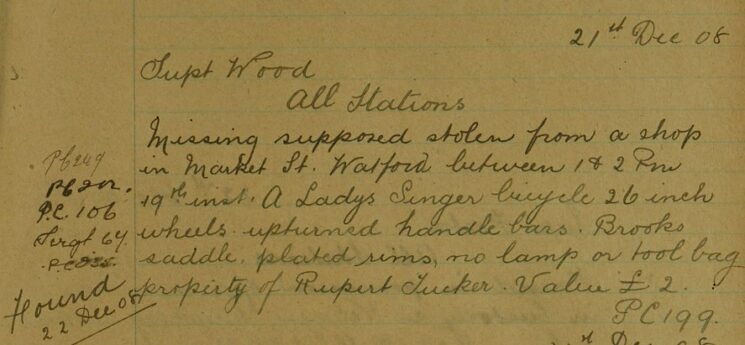 21st Dec 08
Supt Wood
All Stations
Missing supposed stolen from a shop
in Market St. Watford between 1 & 2 Pm
19th inst. A Ladys Singer bicycle 26 inch
wheels. upturned handle bars. Brooks
saddle. plated rims, no lamp or tool bag
property of Rupert Tucker. Value £2.
PC 199.
PC 249
PC 202.
P.C. 106
Sergt 64.
Found
22 Dec 08
Dec 08